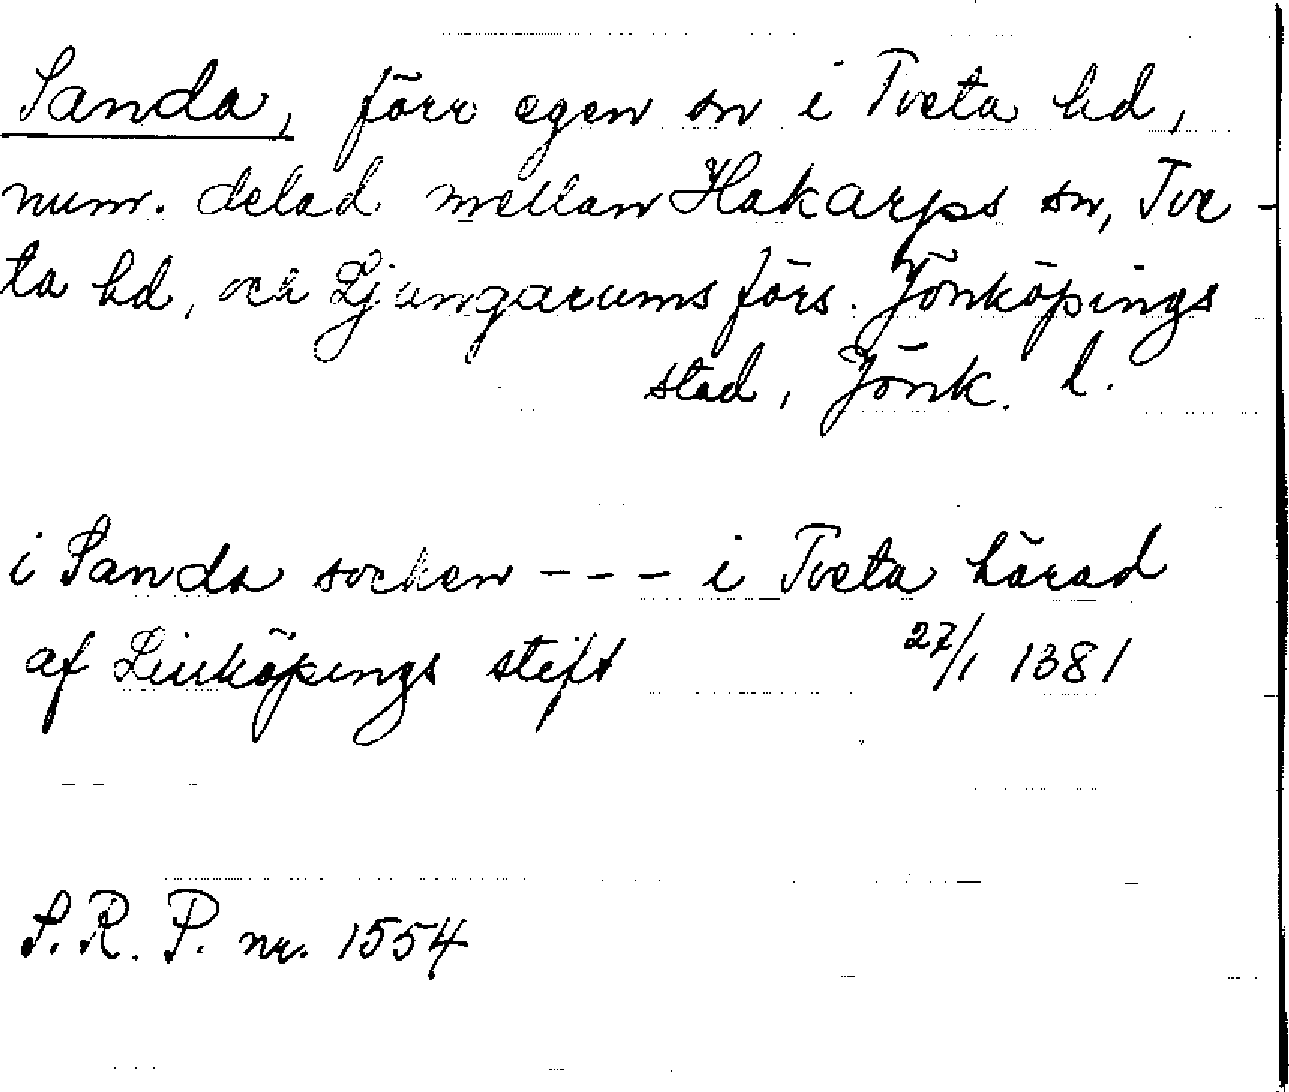 Sanda, förr egen sn i Tveta hd,
num. delad mellan Hakarps sn, Tve-
ta hd, och Ljungarums förs. Jönköpings
stad, Jönk. l.
i Sanda socken - - - i Tveta härad
af Linköpings stift 27/1 1381
S.R.P. nr. 1554